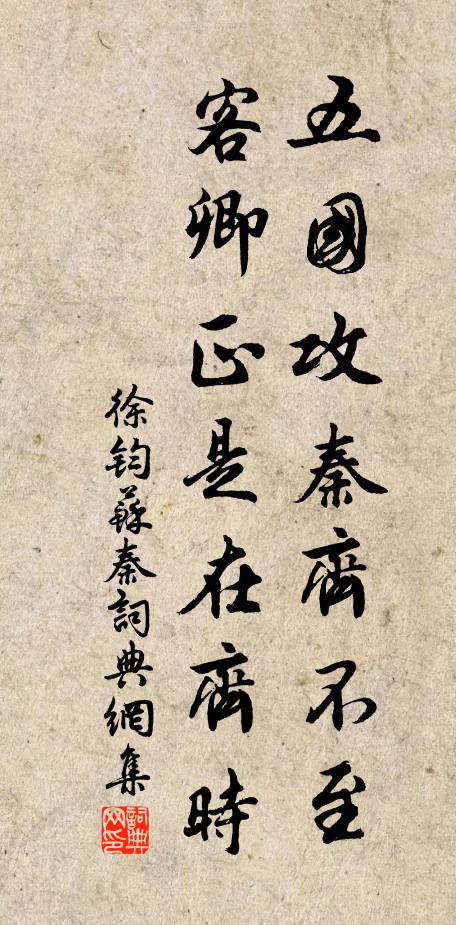 五國攻秦齊不至
客卿正是在齊時
徐鈞蘇秦詞典網集
詞典網印